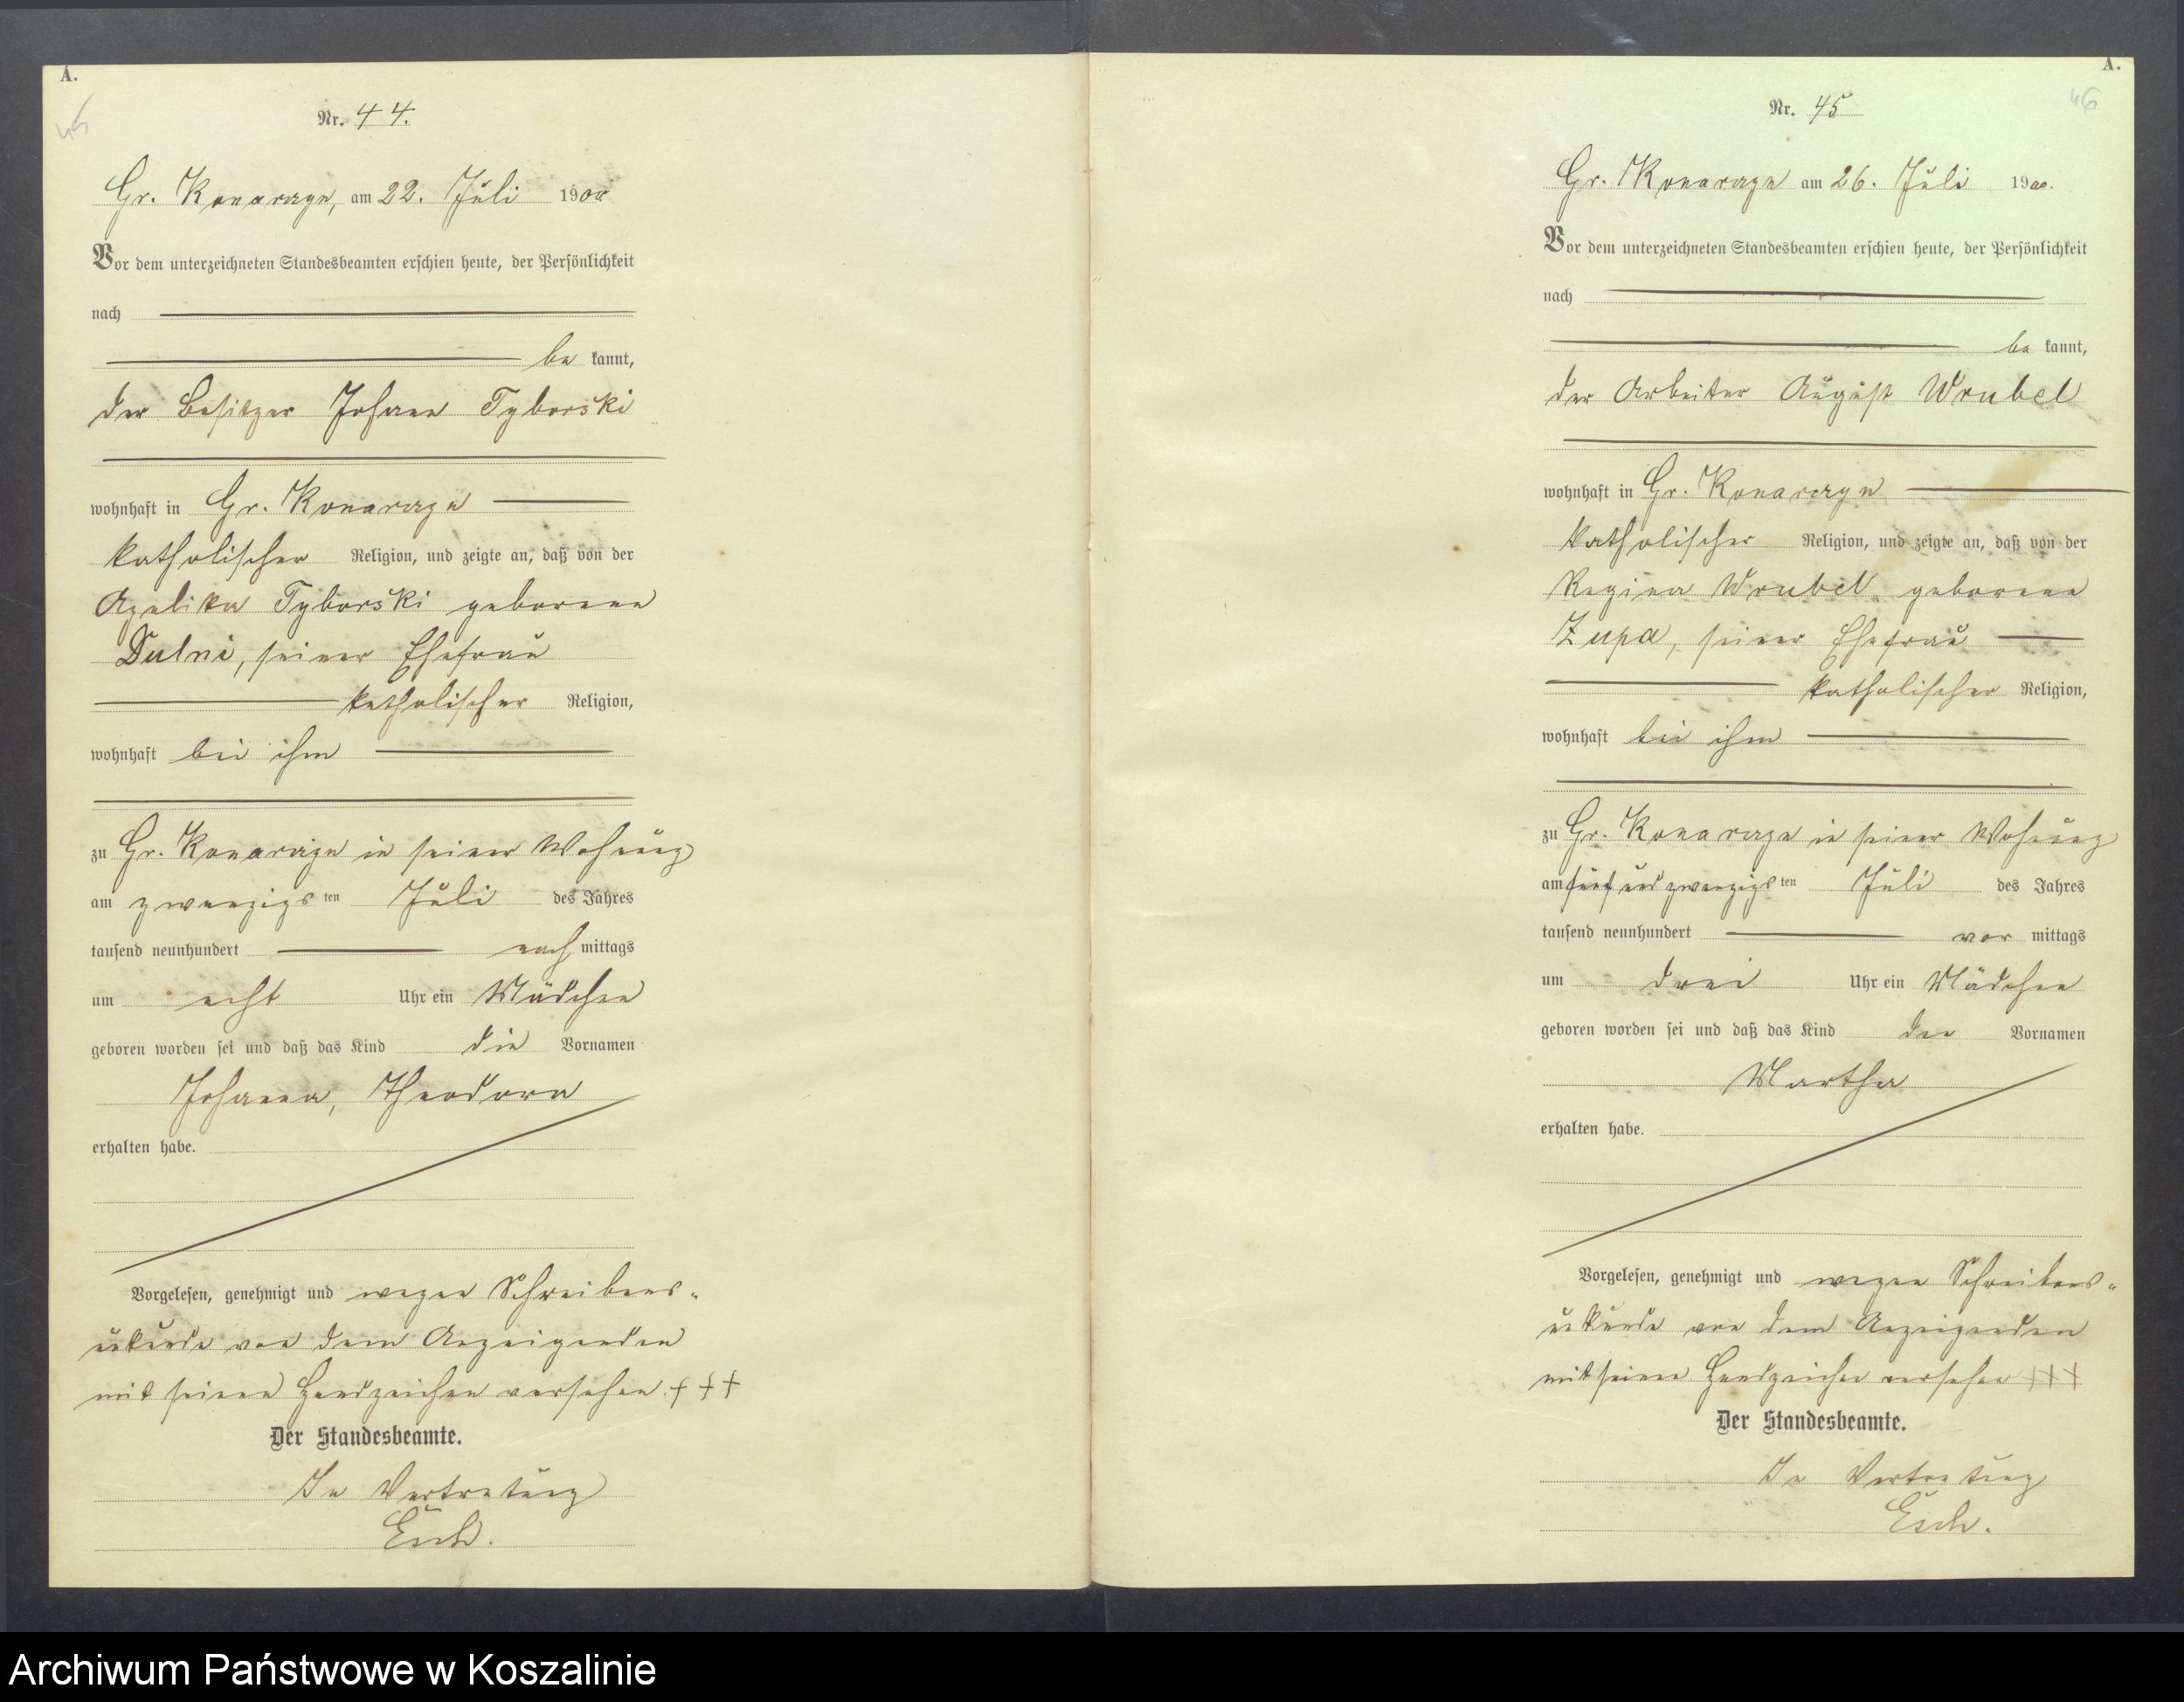 A.
45
Nr. 44.
Gr. Konarzyn, am 22. Juli 1900
Vor dem unterzeichneten Standesbeamten erschien heute, der Persönlichkeit
nach
be kannt,
der Besitzer Johann Tyborski
wohnhaft in Gr. Konarzyn
katholischer Religion, und zeigte an, daß von der
Tyborski geborene
Dulni, seiner Ehefrau
katholischer Religion,
wohnhaft bei ihm
zu Gr. Konarzyn in seiner Wohnung
am zwanzigsten Juli des Jahres
tausend neunhundert nach mittags
um acht Uhr ein Mädchen
geboren worden sei und daß das Kind die Vornamen
Johanna, Theodora
erhalten habe.
Vorgelesen, genehmigt und wegen Schreibens-
unkunde von dem Anzeigenden
mit seinen Handzeichen versehen. +++
Der Standesbeamte.
In Vertretung
Esch.
A.
46
Nr. 45
Gr. Konarzyn am 26. Juli 1900.
Vor dem unterzeichneten Standesbeamten erschien heute, der Persönlichkeit
nach
be kannt,
der Arbeiter August Wrubel
wohnhaft in Gr. Konarzyn
katholischer Religion, und zeigte an, daß von der
Regina Wrubel geborene
Zupa, seiner Ehefrau
katholischer Religion,
wohnhaft bei ihm
zu Gr. Konarzyn in seiner Wohnung
am fünf und zwanzigsten Juli des Jahres
tausend neunhundert vor mittags
um drei Uhr ein Mädchen
geboren worden sei und daß das Kind den Vornamen
Martha
erhalten habe.
Vorgelesen, genehmigt und wegen Schreibens-
unkunde von dem Anzeigenden
mit seinen Handzeichen versehen +++
Der Standesbeamte.
In Vertretung
Esch.
Archiwum Państwowe w Koszalinie